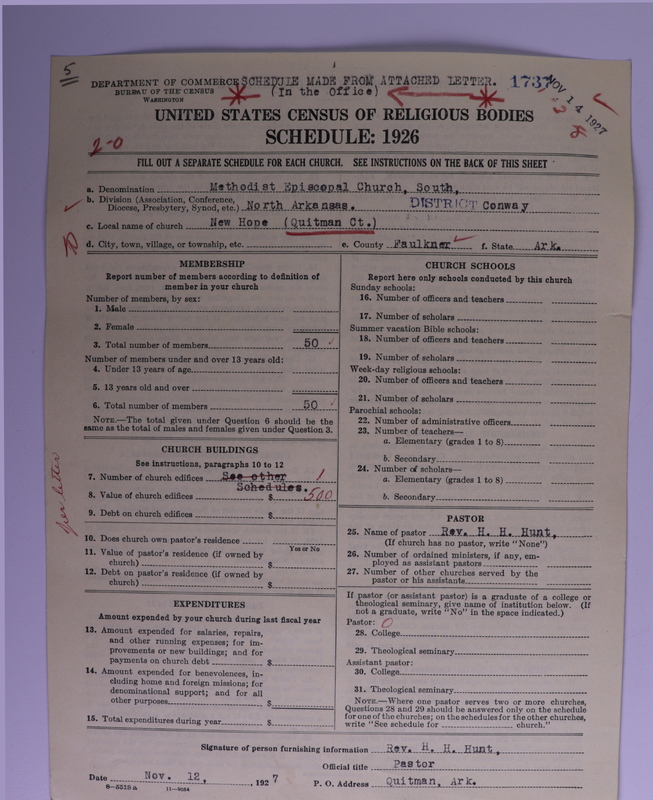 5
DEPARTMENT OF COMMERCE SCHEDULE MADE FROM ATTACHED LETTER. 1737
BUREAU OF THE CENSUS (In the Office)
WASHINGTON
NOV 14 1927
UNITED STATES CENSUS OF RELIGIOUS BODIES
2-0
SCHEDULE: 1926
FILL OUT A SEPARATE SCHEDULE FOR EACH CHURCH. SEE INSTRUCTIONS ON THE BACK OF THIS SHEET
a. Denomination Methodist Episcopal Church, South,
b. Division (Association, Conference, Diocese, Presbytery, Synod, etc.) North Arkansas. DISTRICT Conway
c. Local name of church New Hope (Quitman Ct.)
d. City, town, village, or township, etc. e. County Faulkner f. State Ark.
MEMBERSHIP
Report number of members according to definition of
member in your church
Number of members, by sex:
1. Male
2. Female
3. Total number of members 50
Number of members under and over 13 years old:
4. Under 13 years of age
5. 13 years old and over
6. Total number of members 50
NOTE.—The total given under Question 6 should be
same as the total of males and females given under Question 3.
CHURCH BUILDINGS
See instructions, paragraphs 10 to 12
7. Number of church edifices See other 1
Schedules.
8. Value of church edifices $ 500
9. Debt on church edifices $
per letter
10. Does church own pastor's residence
Yes or No
11. Value of pastor's residence (if owned by
church) $
12. Debt on pastor's residence (if owned by
church) $
EXPENDITURES
Amount expended by your church during last fiscal year
13. Amount expended for salaries, repairs,
and other running expenses; for im-
provements or new buildings; and for
payments on church debt $
14. Amount expended for benevolences, in-
cluding home and foreign missions; for
denominational support; and for all
other purposes $
15. Total expenditures during year $
CHURCH SCHOOLS
Report here only schools conducted by this church
Sunday schools:
16. Number of officers and teachers
17. Number of scholars
Summer vacation Bible schools:
18. Number of officers and teachers
19. Number of scholars
Week-day religious schools:
20. Number of officers and teachers
21. Number of scholars
Parochial schools:
22. Number of administrative officers
23. Number of teachers—
a. Elementary (grades 1 to 8)
b. Secondary
24. Number of scholars—
a. Elementary (grades 1 to 8)
b. Secondary
PASTOR
25. Name of pastor Rev. H. H. Hunt,
(If church has no pastor, write "None")
26. Number of ordained ministers, if any, em-
ployed as assistant pastors
27. Number of other churches served by the
pastor or his assistants
If pastor (or assistant pastor) is a graduate of a college or
theological seminary, give name of institution below. (If
not a graduate, write "No" in the space indicated.)
Pastor: 0
28. College
29. Theological seminary
Assistant pastor:
30. College
31. Theological seminary
NOTE.—Where one pastor serves two or more churches,
Questions 28 and 29 should be answered only on the schedule
for one of the churches; on the schedules for the other churches,
write "See schedule for church."
Signature of person furnishing information Rev. H. H. Hunt,
Official title Pastor
Date Nov. 12, 1927 P. O. Address Quitman, Ark.
8—5318a 11—9054